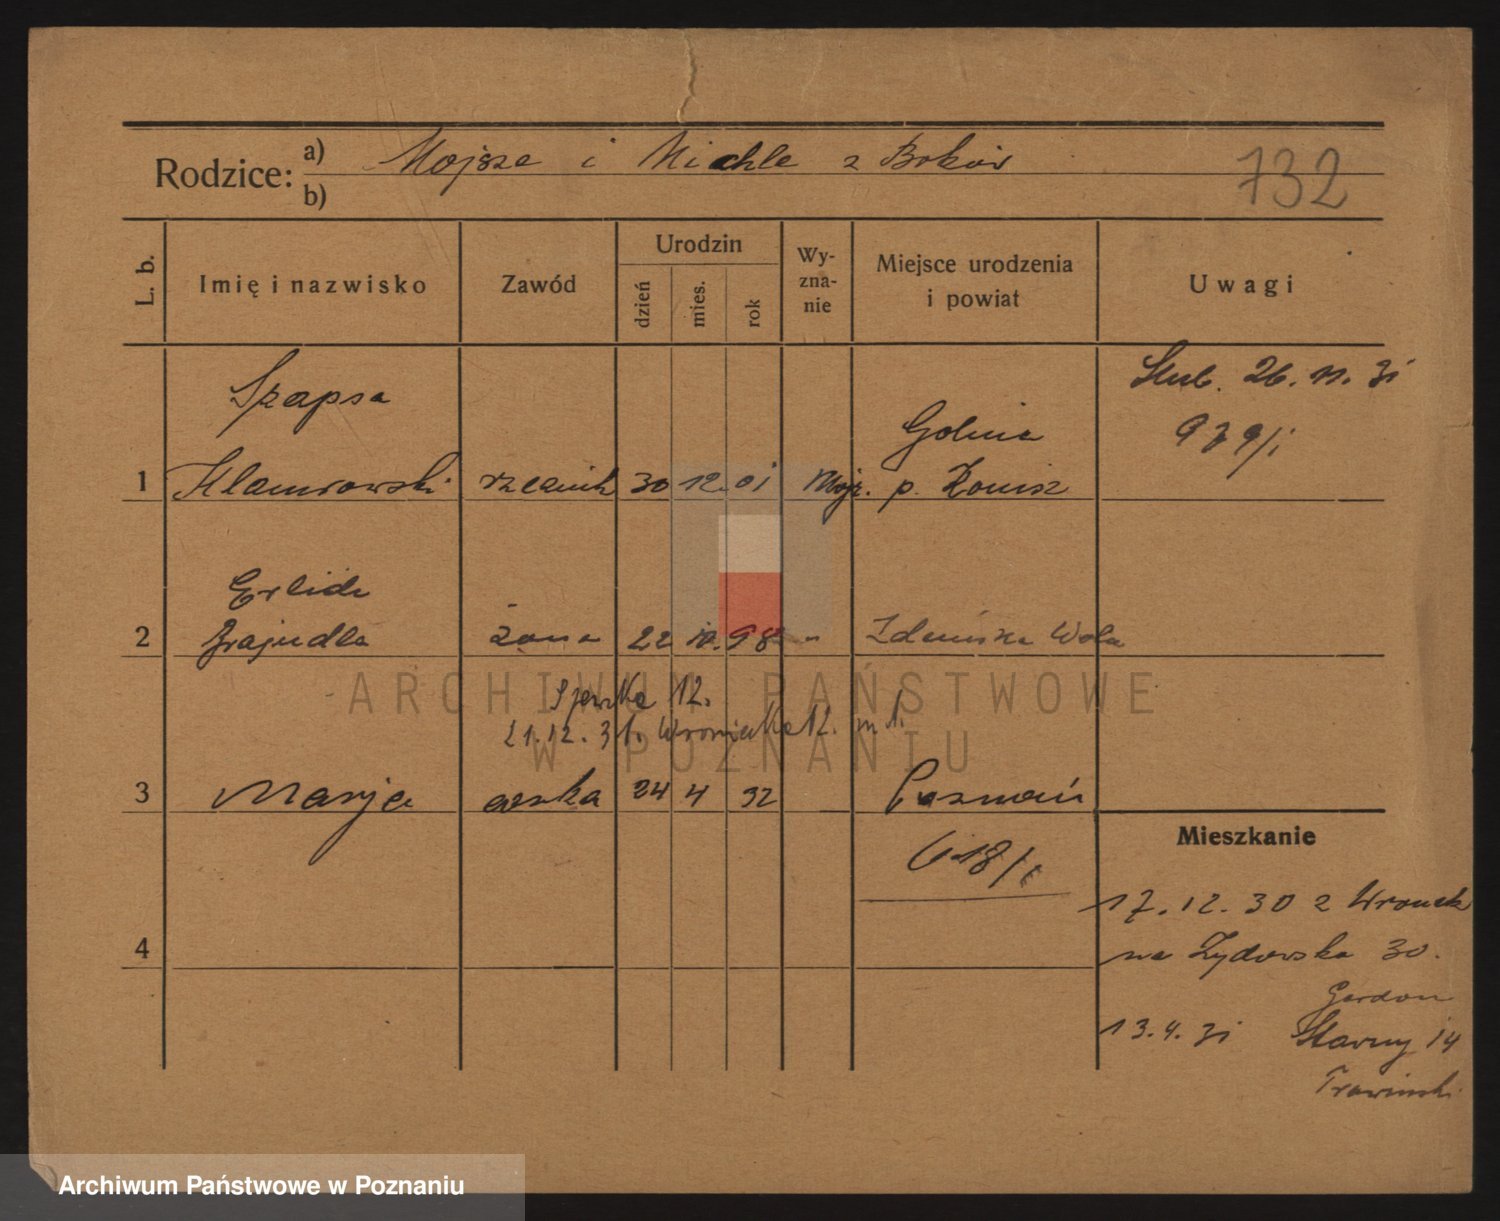 Rodzice:
a) Mojsze i Michle z Boków
b)
732
L. b.
Imię i nazwisko
Zawód
Urodzin
dzień
mies.
rok
Wy-
zna-
nie
Miejsce urodzenia
i powiat
Uwagi
Szapsa
Ślub. 26. 11. 31
Golina
979/i
1 Klamrowski rzeźnik 30 12. 01 Mojż. p. Konin
Frajndla
2 żona 22 10. 98 " Zduńska Wola
Szewska 12.
21.12.31. Wroniecka 12. m 1.
3 Marja córka 24 4 32 Poznań
618/
Mieszkanie
17.12.30 z Wronek
4
na Żydowska 30.
Gordon
13.4.31 Stawny 14
ARCHIWUM PAŃSTWOWE
W POZNANIU
Archiwum Państwowe w Poznaniu